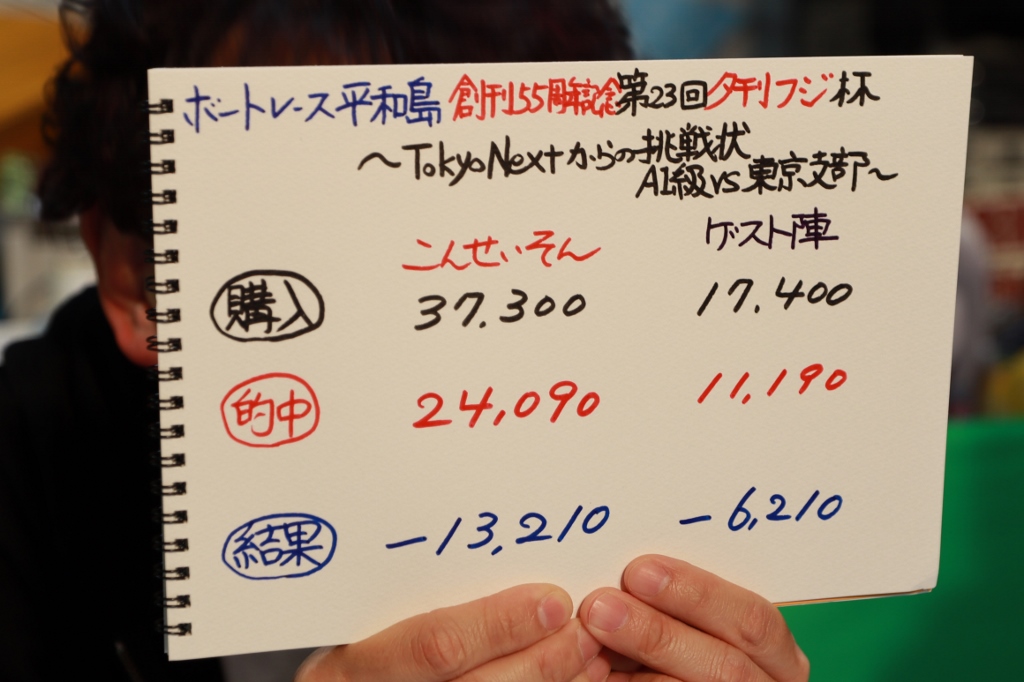 ボートレース平和島 創刊55周年記念第23回夕刊フジ杯
～TokyoNextからの挑戦状
A1級vs東京支部～
こんせいそん ゲスト陣
購入 37.300 17.400
的中 24,090 11,190
結果 -13,210 -6,210